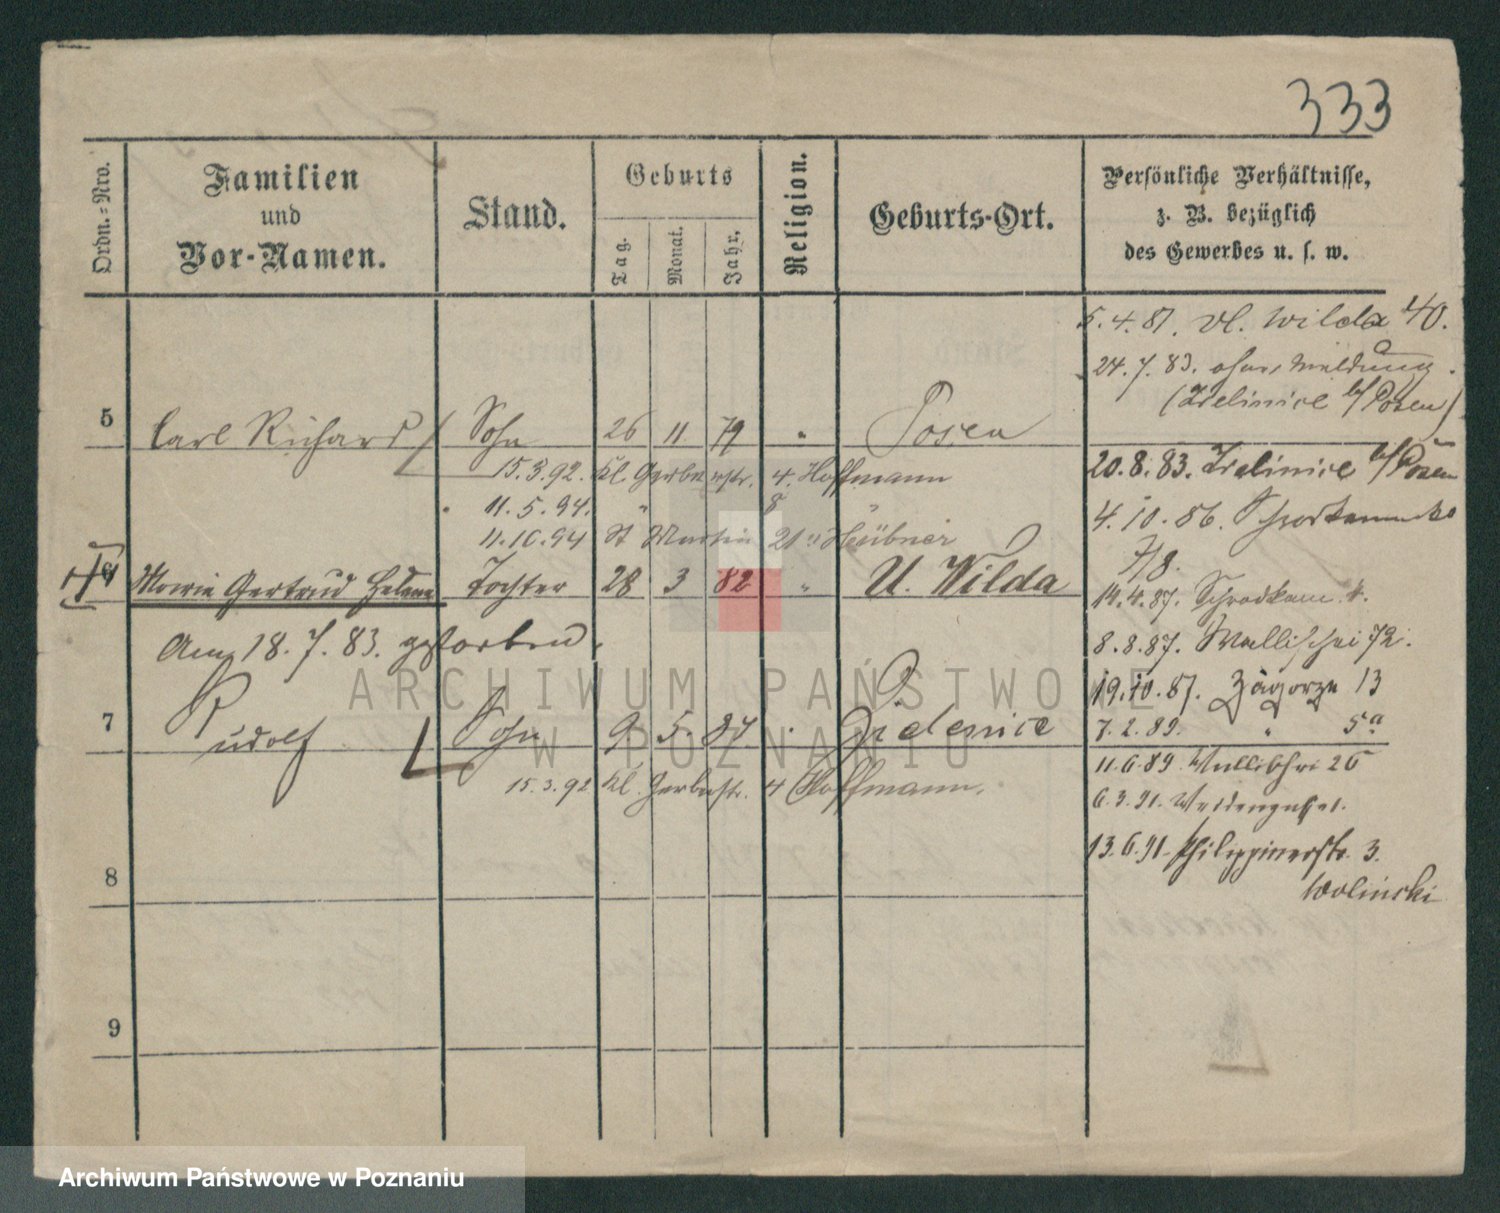 333
Ordn.-Nro.
Familien
und
Vor-Namen.
Stand.
Geburts
Tag.
Monat.
Jahr.
Religion.
Geburts-Ort.
Persönliche Verhältnisse,
z. B. bezüglich
des Gewerbes u. s. w.
5.4.81. Wilda 40.
24.7.83. ohne Meldung.
(Zielinice b/Posen)
5 Carl Richard Sohn 26 11 79 " Posen
20.8.83. Zielinice b/Posen
15.3.92. Kl. Gerberstr. 4. Hoffmann
11.5.94. " 8 "
4.10.86.
11.10.94 St Martin 21 Hübner
7/8.
6 Marie Gertrud Helene Tochter 28 3 82 " U. Wilda
14.4.87. 4.
Am 18.7.83. gestorben.
8.8.87. Wallischei 72.
19.10.87. Zagorze 13
7 Rudolf Sohn 9 5 87 "
7.2.89. " 5a
11.6.89. Wallischei 26
15.3.92 Kl. Gerberstr. 4 Hoffmann.
6.3.91.
13.6.91. Philippinerstr. 3.
8
Wolinski
9
ARCHIWUM PAŃSTWOWE
W POZNANIU
Archiwum Państwowe w Poznaniu